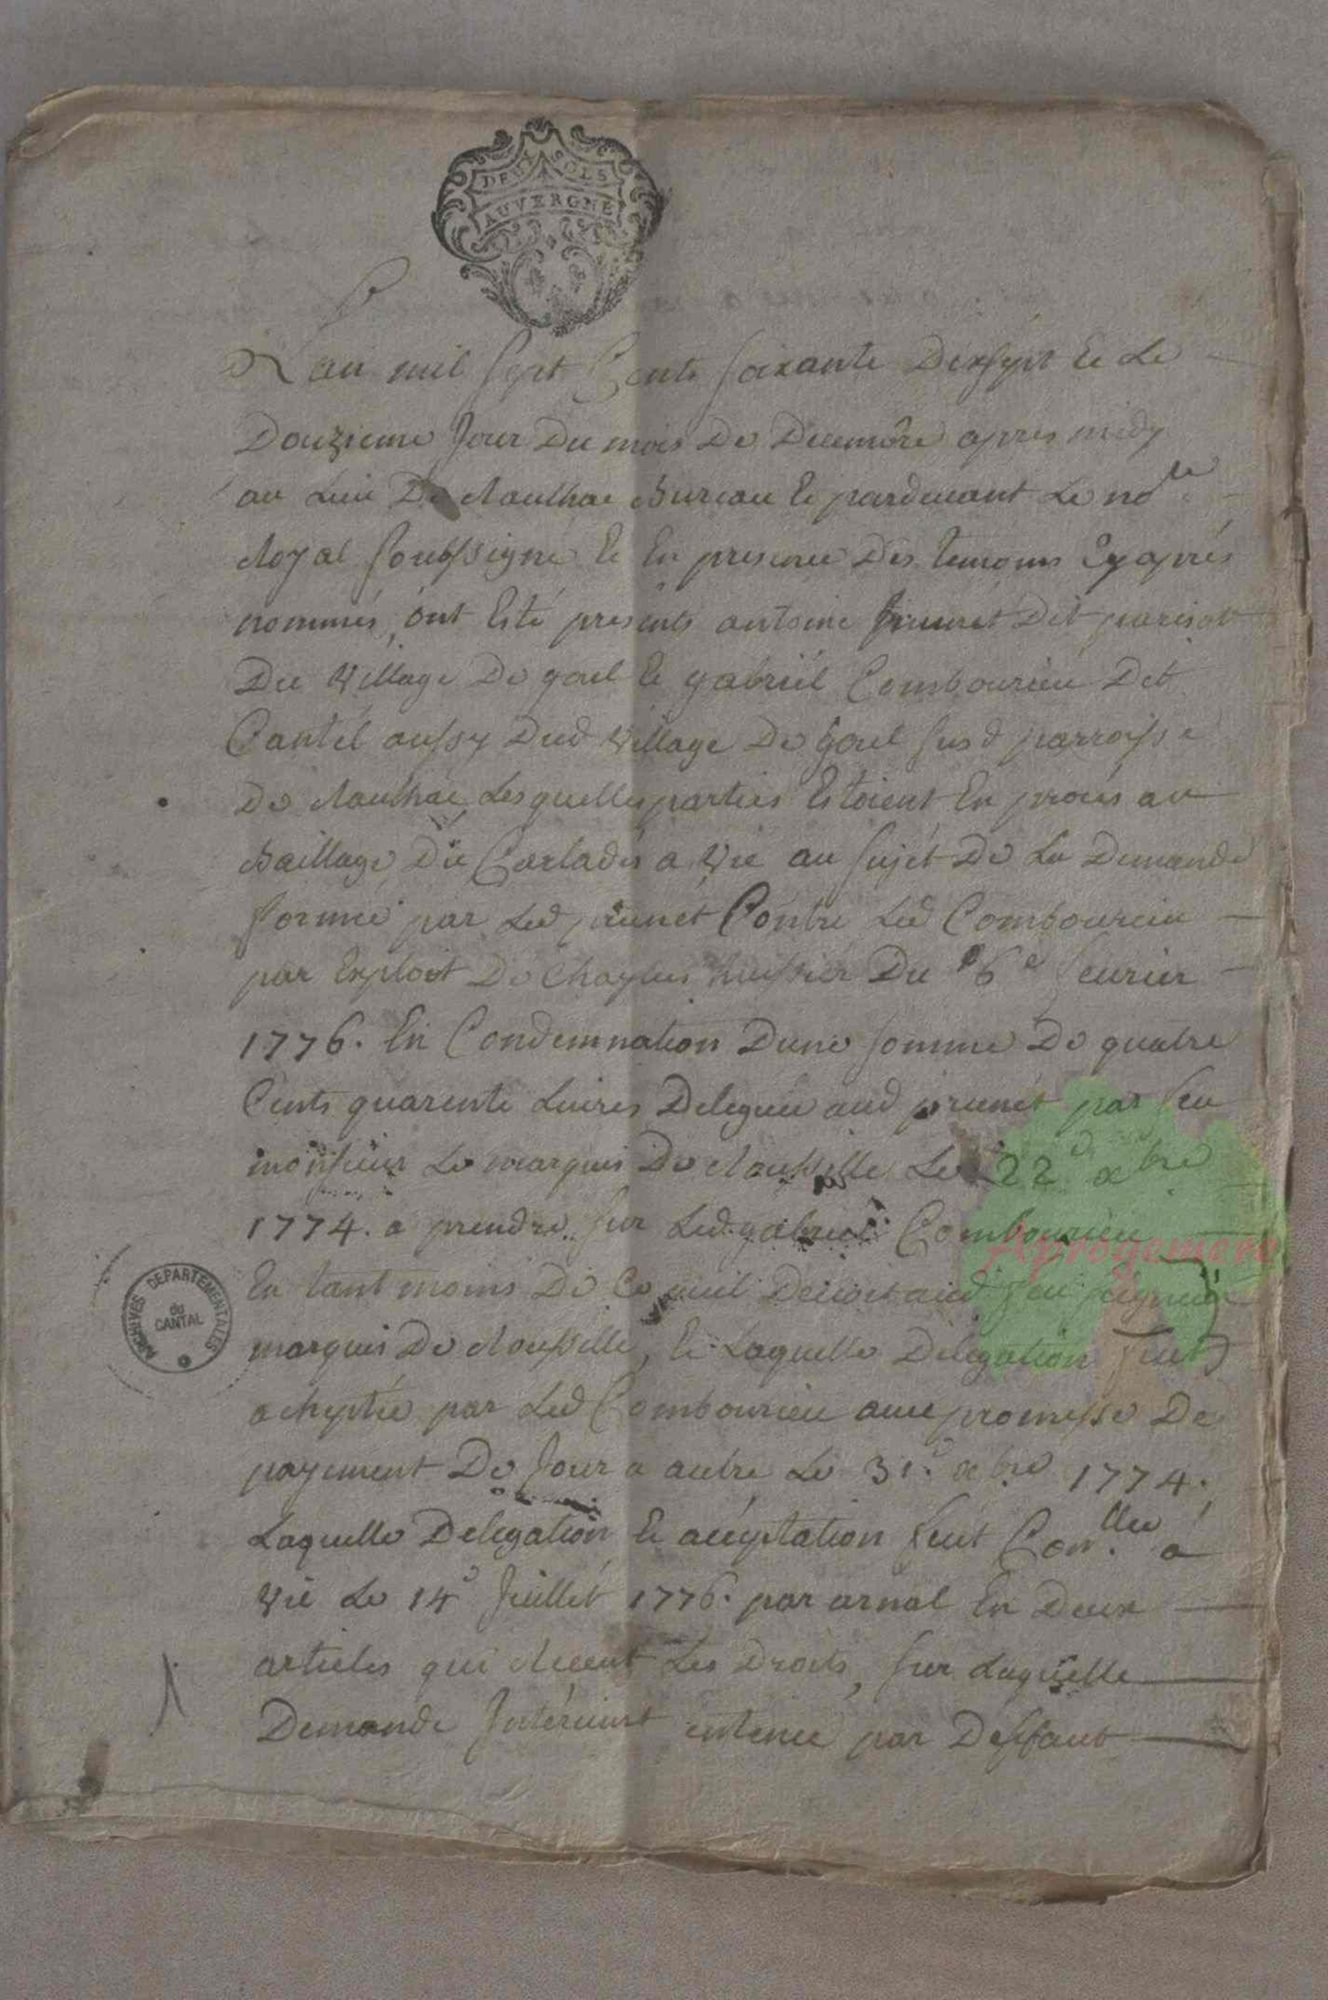 DEUX SOLS
AUVERGNE
Lan mil sept Cents soixante Dixsept Et Le
Douzieme Jour Du mois De Decembre apres midy
au Lieu De Raulhac Bureau Et pardevant Le no.re
Royal soubssigné Et En presence Des temoins Cy aprés
nommés, ont Esté presents antoine prunet Dit parisot
Du village De goul Et gabriël Combourieu Dit
Cantél aussy Dud village De goul susd parroisse
De Raulhac Lesquelles parties Estoient En procés au
Baillage Du Carladés a Vic au sujét De La Demande
formée par Led prunét Contre Led Combourieu
par Exploit De Chaylus huissier Du 6e fevrier
1776. En Condemnation Dune somme De quatre
Cents quarente Livres Deleguée aud prunét par feu
monsieur Le marquis De Roussille Le 22e xbre
1774. a prendre sur Led gabriel Combourieu
En tant moins De Ce quil Devoit aud feu seigneur
marquis De Roussille, Et Laquelle Delegation feut
acheptée par Led Combourieu avec promesse De
payement De Jour a autre Le 31e xbre 1774.
Laquelle Delegation Et acéptation feut Con.llée a
Vic Le 14e Juillét 1776. par arnal En Deux
articles qui Receut Les Droits, sur Laquelle
Demande Intérvint sentence par Deffaut
ARCHIVES DEPARTEMENTALES
du
CANTAL
Aprogemere